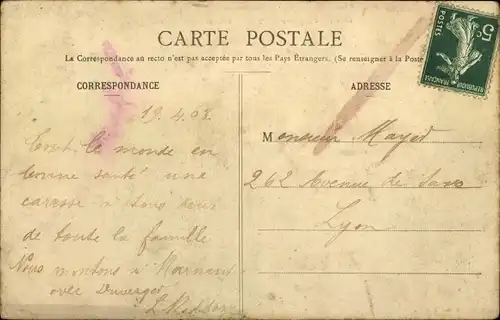 CARTE POSTALE
La Correspondance au recto n'est pas acceptée par tous les Pays Étrangers. (Se renseigner à la Poste
CORRESPONDANCE
19.4.08
Tout le monde en
bonne santé une
caresse à tous deux
de toute la famille
Nous montons à
avec Duverger
ADRESSE
Monsieur Mayed
262 Avenue de Saxe
Lyon
5c
POSTES
REPUBLIQUE FRANÇAISE